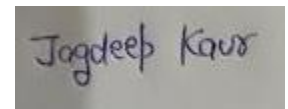 Jagdeep Kaur